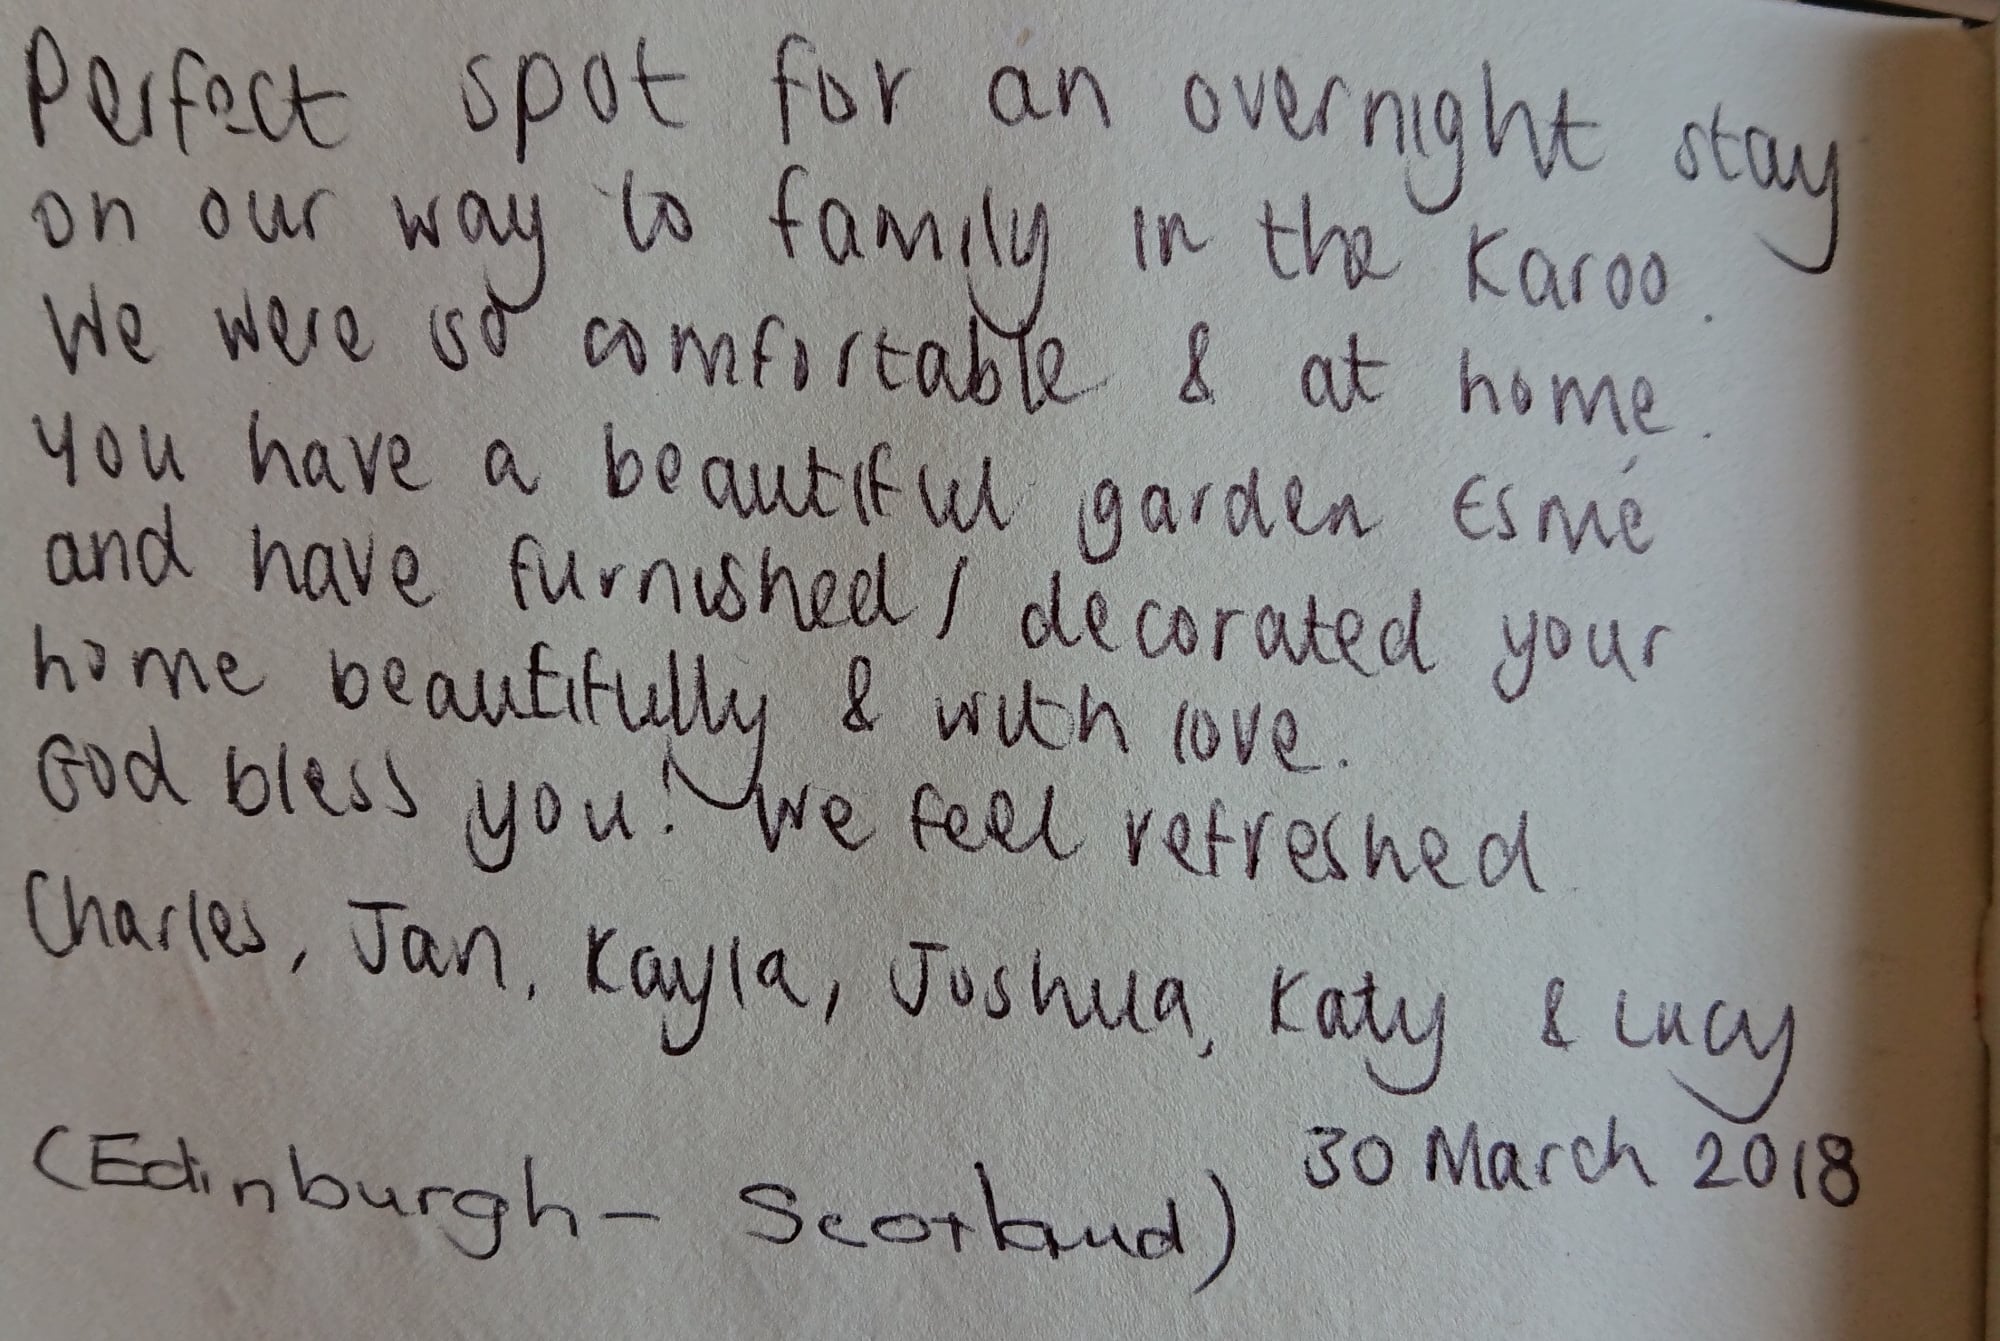 Perfect spot for an overnight stay
on our way to family in the Karoo.
We were so comfortable & at home.
You have a beautiful garden Esmé
and have furnished / decorated your
home beautifully & with love.
God bless you! We feel refreshed
Charles, Jan, Kayla, Joshua, Katy & Lucy
30 March 2018
(Edinburgh - Scotland)